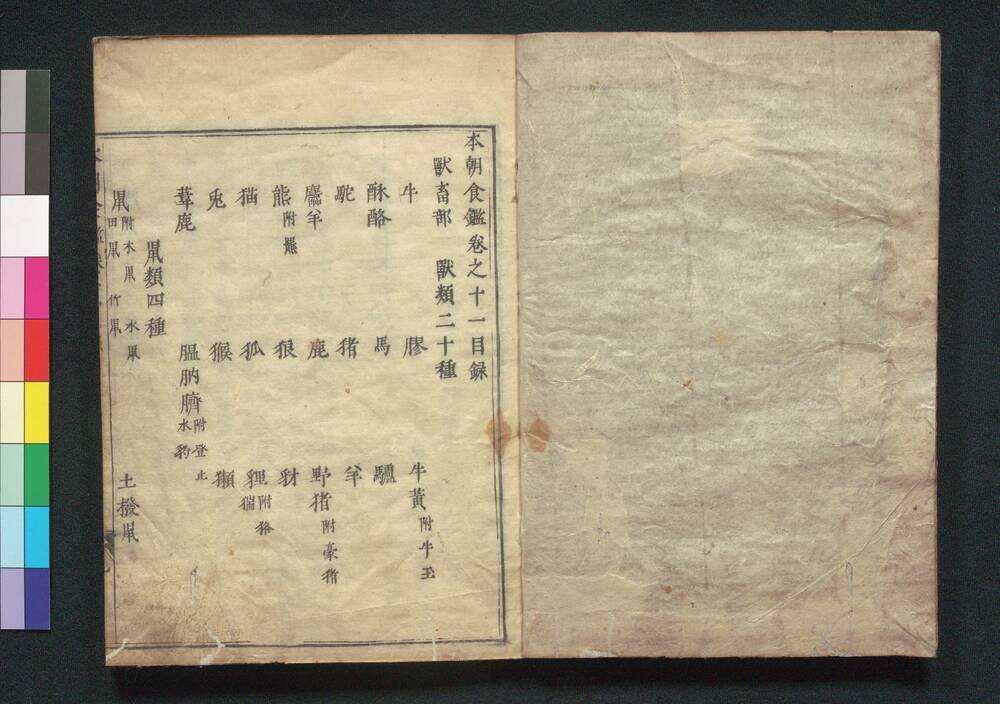 本朝食鑑卷之十一目録
獸畜部 獸類二十種
牛 膠 牛黃附牛玉
酥酪 馬 驢
駝 猪 羊
麢羊 鹿 野猪附豪猪
熊附羆 狼 豺
猫 狐 狸附貉 猯
兎 猴 獺
葦鹿 膃肭臍附登止 水豹
鼠類四種
鼠附水鼠 田鼠 竹鼠 水鼠 土撥鼠